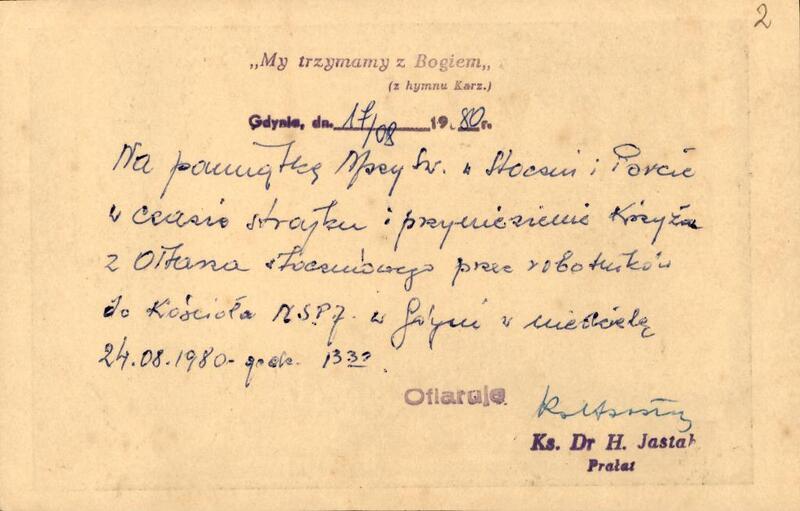 2
„My trzymamy z Bogiem„
(z hymnu Karz.)
Gdynia, dn. 17/08 1980 r.
Na pamiątkę Mszy Św. w Stoczni i Porcie
w czasie strajku i przyniesienie Krzyża
z Ołtarza stoczniowego przez robotników
do Kościoła N.S.P.J. w Gdyni w niedzielę
24.08.1980 - godz. 13 30
Ofiaruje
Ks. Dr H. Jastak
Prałat